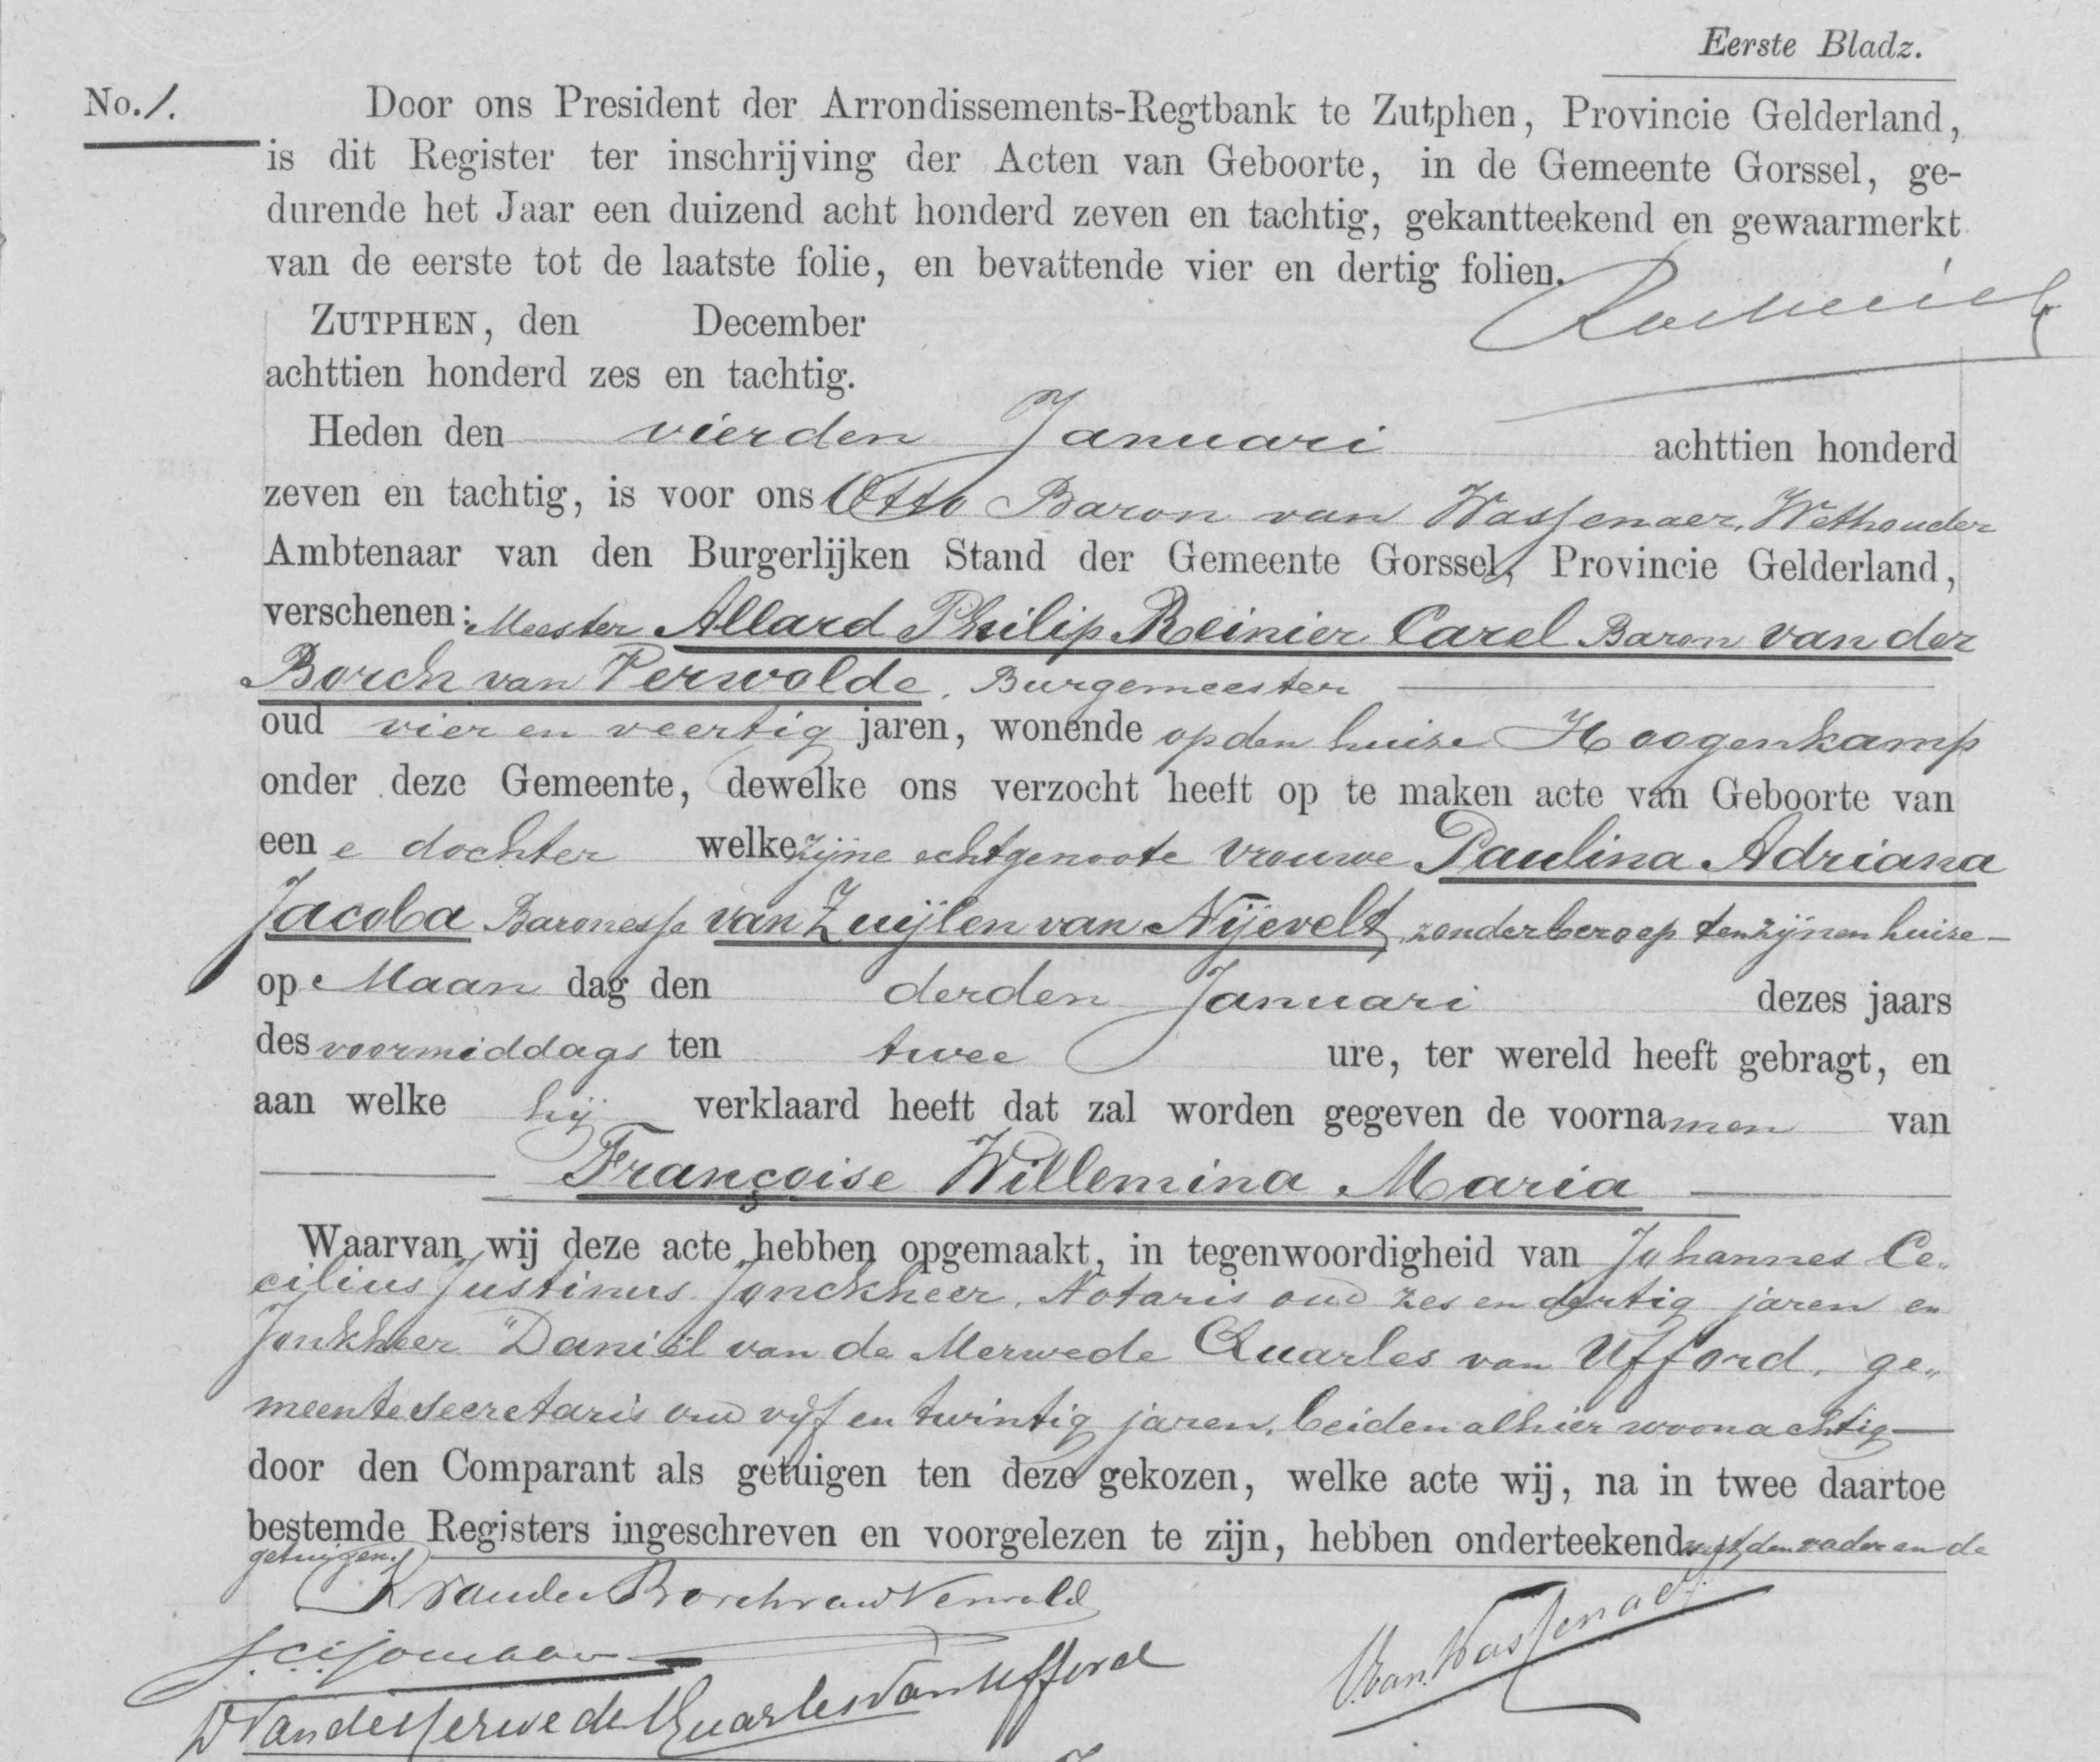 Eerste Bladz.
No. 1. Door ons President der Arrondissements-Regtbank te Zutphen, Provincie Gelderland,
is dit Register ter inschrijving der Acten van Geboorte, in de Gemeente Gorssel, ge-
durende het Jaar een duizend acht honderd zeven en tachtig, gekantteekend en gewaarmerkt
van de eerste tot de laatste folie, en bevattende vier en dertig folien.
ZUTPHEN, den December
achttien honderd zes en tachtig.
Heden den vierden Januari achttien honderd
zeven en tachtig, is voor ons Otto Baron van Wassenaer, Wethouder
Ambtenaar van den Burgerlijken Stand der Gemeente Gorssel, Provincie Gelderland,
verschenen: Meester Allard Philip Reinier Carel Baron van der
Borch van Verwolde, Burgemeester
oud vier en veertig jaren, wonende op den huize Hoogenkamp
onder deze Gemeente, dewelke ons verzocht heeft op te maken acte van Geboorte van
eene dochter welke zijne echtgenoote vrouwe Paulina Adriana
Jacoba Baronesse van Zuijlen van Nijevelt, zonder beroep ten zijnen huize
op Maandag den derden Januari dezes jaars
des voormiddags ten twee ure, ter wereld heeft gebragt, en
aan welke hij verklaard heeft dat zal worden gegeven de voornamen van
Françoise Willemina Maria
Waarvan wij deze acte hebben opgemaakt, in tegenwoordigheid van Johannes Ce„
cilius Justinus Jonckheer, Notaris oud zes en dertig jaren en
Jonkheer Daniël van de Merwede Quarles van Ufford, ge„
meentesecretaris oud vijf en twintig jaren, beiden alhier woonachtig
door den Comparant als getuigen ten deze gekozen, welke acte wij, na in twee daartoe
bestemde Registers ingeschreven en voorgelezen te zijn, hebben onderteekend met den vader en de
getuigen.
van der Borch van Verwolde
D van de Merwede Quarles van Ufford
van Wassenaer